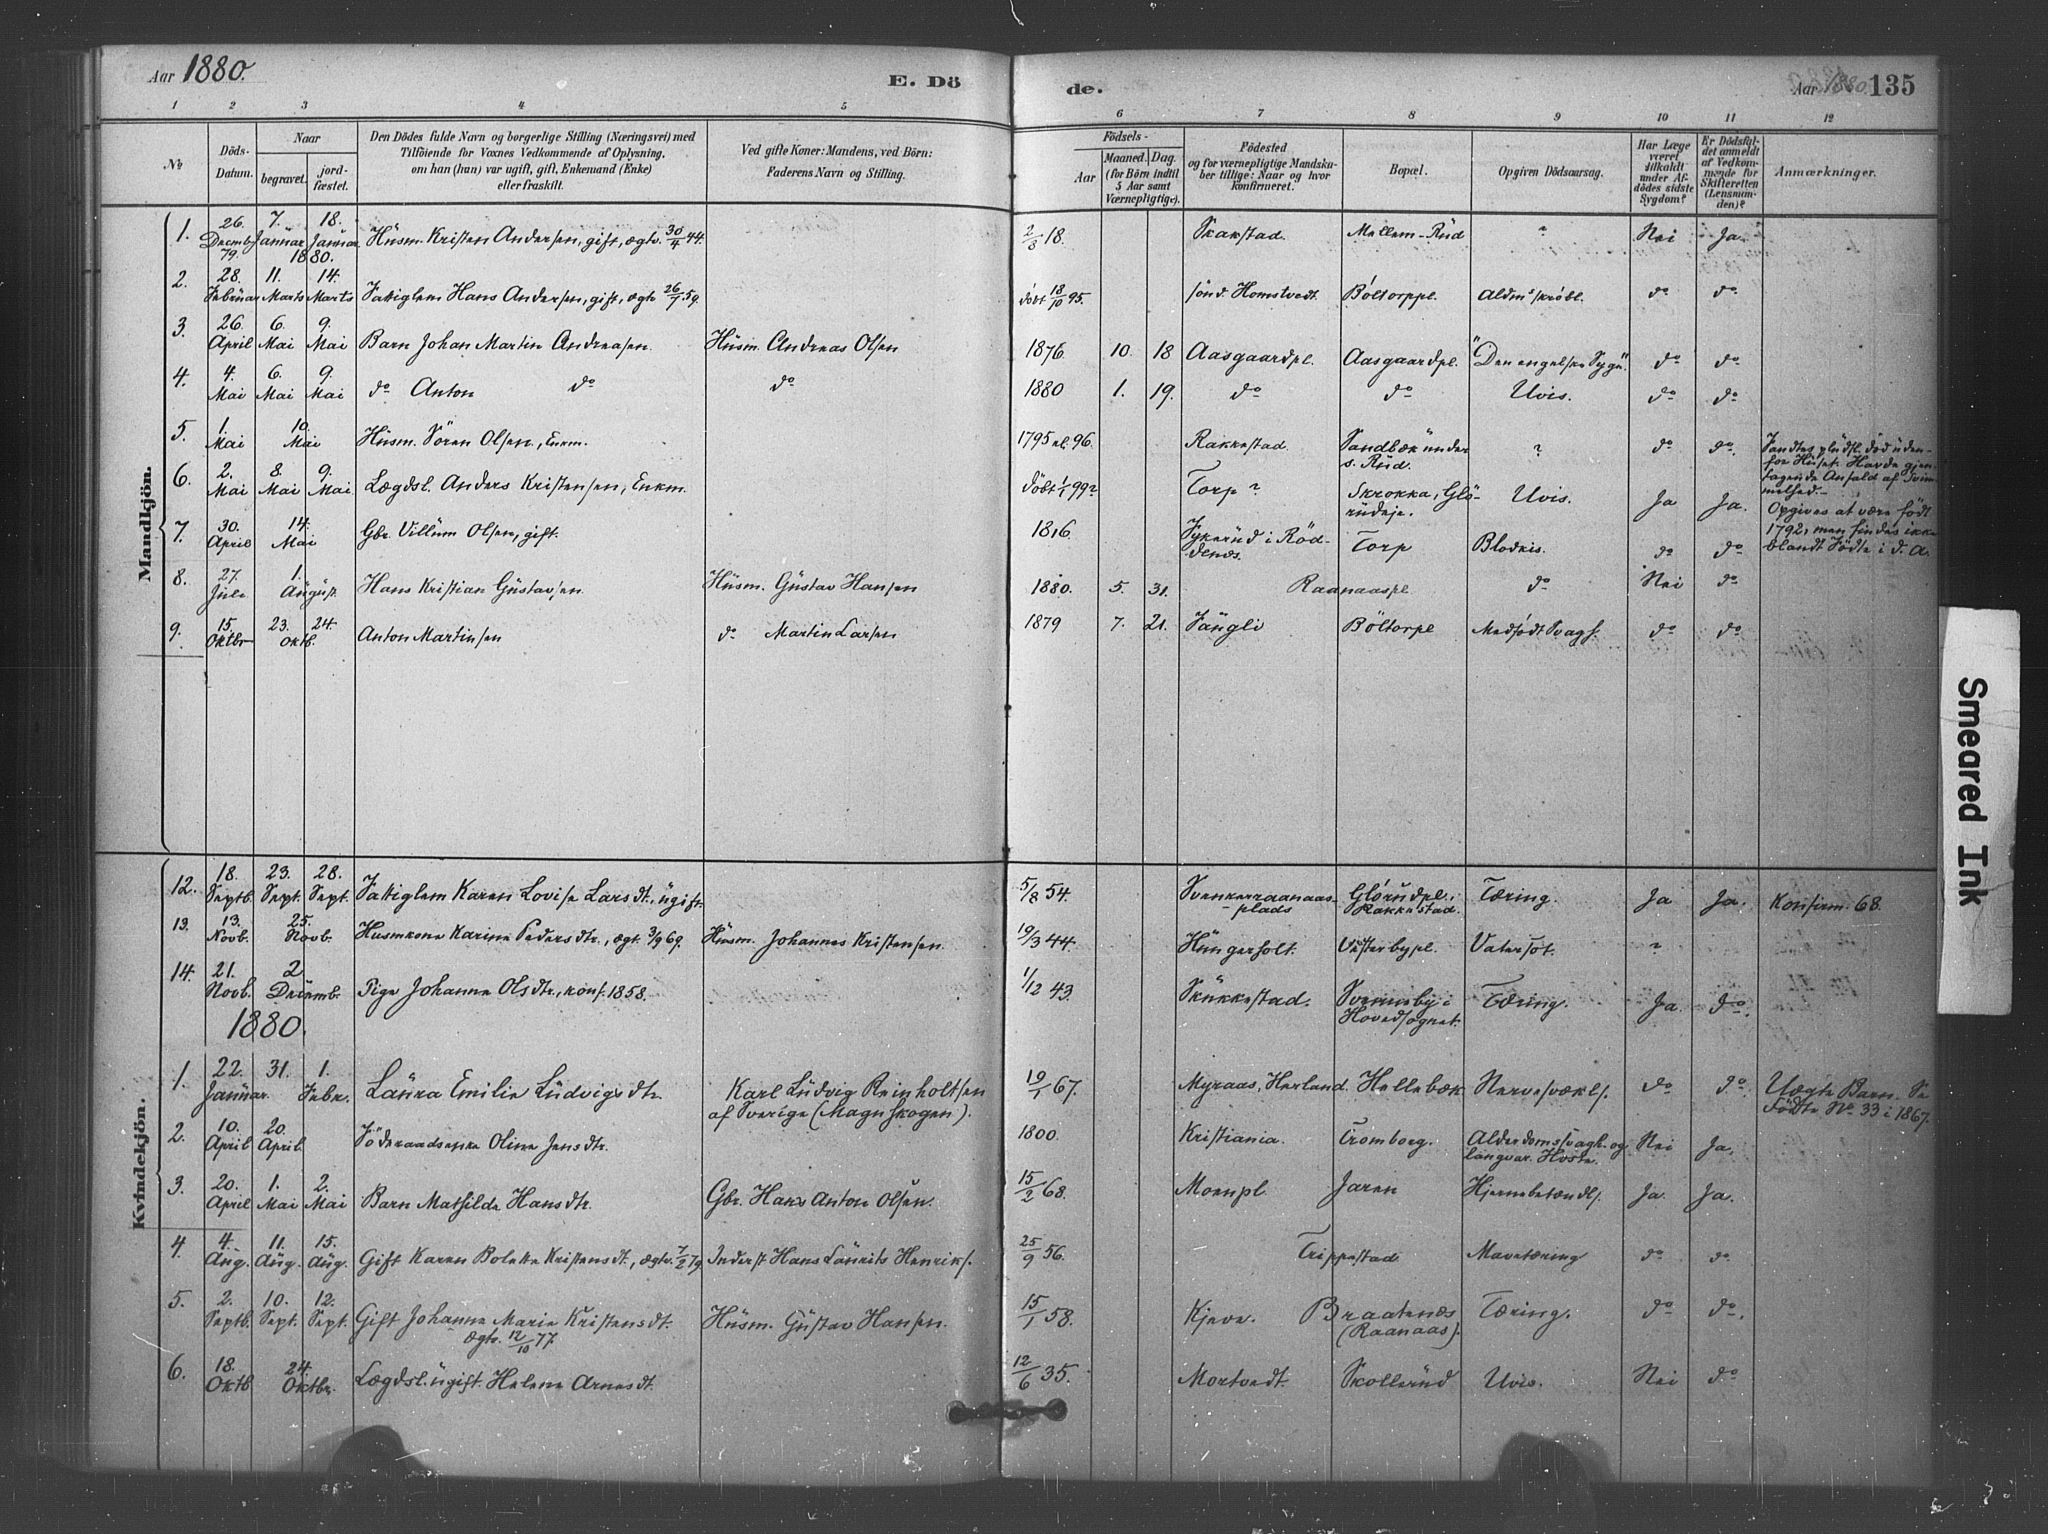 Aar 1880. E. Dö de. Aar 1880. 135
1 2 3 4 5 6 7 8 9 10 11 12
No Döds-Datum. Naar begravet. jordfæstet. Den Dödes fulde Navn og borgerlige Stilling (Næringsvei) med Tilföiende for Voxnes Vedkommende af Oplysning, om han (hun) var ugift, gift, Enkemand (Enke) eller fraskilt. Ved gifte Koner: Mandens, ved Börn: Faderens Navn og Stilling. Födsels- Aar Maaned. Dag. (for Börn indtil 5 Aar samt Værnepligtige). Födested og for værnepligtige Mandskuber tillige: Naar og hvor konfirmeret. Bopæl. Opgiven Dödsaarsag. Har Læge været tilkaldt under Afdödes sidste Sygdom? Er Dödsfaldet anmeldt af Vedkommende for Skifteretten (Lensmanden)? Anmærkninger.
Mandkjön.
1. 26. Decmbr 79. 7. Januar 18. Januar 1880. Husm. Kristen Andersen, gift, ægtv. 30/4 44. 2/8 18. Skakstad. Mellem-Rud ? Nei Ja
2. 28. Februar 11. Marts 14. Marts Fattiglem Hans Andersen, gift, ægtv 26/7 59. döbt 18/10 95. sönd. Homstvedt. Böltorppl. Aldmsskröbl. do do
3. 26. April 6. Mai 9. Mai Barn Johan Martin Andreasen. Husm. Andreas Olsen 1876 10. 18 Aasgaardpl. Aasgaardpl. "Den engelske Syge". do do
4. 4. Mai 6. Mai 9. Mai do Anton do do 1880 1. 19. do do Uvis. do do
5. 1. Mai 10. Mai Husm. Sören Olsen, Enkm. 1795 el. 96. Rakkestad. Sandbæk under s. Rud. ? do do. Fandtes pludsl. död udenfor Huset. Havde gjentagende Anfald af Svimmelhed.
6. 2. Mai 8. Mai 9. Mai Lægdsl. Anders Kristensen, Enkm. Döbt 1/1 99? Torp ? Skrokka, Glörudeje. Uvis. Ja Ja. Opgives at være födt 1792, men findes ikke blandt Födte i d. A.
7. 30. April 14. Mai Gbr. Villum Olsen, gift. 1816 Fykerud i Röddenæs. Torp Blodkis. do do
8. 27. Juli 1. August Hans Kristian Gustavsen. Husm. Gustav Hansen 1880. 5. 31. Raanaaspl do Nei do
9. 15. Oktbr 23. 24. Oktb. Anton Martinsen do Martin Larsen 1879 7. 21. Böltorpl Medfödt Svagh. do do
Kvindekjön.
12. 18. Septb. 23. Sept. 28. Sept. Fattiglem Karen Lovise Larsdt., ugift. 5/8 54. Svenkerraanaasplads Glörudpl. i Rakkestad. Tæring. Ja Ja. Konfirm. 68.
13. 13. Novb. 25. Novb. Husmkone Karine Pedersdtr., ægt. 3/9 69. Husm. Johannes Kristensen 19/3 44. Hungerholt. Vesterbypl. Vatersot. ? do.
14. 21. Novb. 2 Decemb. Pige Johanne Olsdtr., konf. 1858. 1/12 43. Skukkestad. i Hovedsognet. Tæring. Ja. do.
1880.
1. 22. Januar 31. 1. Febr. Laura Emilie Ludvigsdtr. Karl Ludvig Reinholtsen af Sverige (Magnskogen). 19/1 67. Myraas, Herland. Hellebæk Nervesvækls. do do. Uægte Barn. Se Födte No. 33 i 1867.
2. 10. April 20. April Föderaadsenke Oline Jensdtr. 1800. Kristiania. Tromborg. Alderdomssvagh. og langvar. Hoste. Nei Ja.
3. 20. April 1. Mai 2. Mai Barn Mathilde Hansdtr. Gbr. Hans Anton Olsen. 15/2 68. Moenpl Jaren Hjernebetændls. Ja. Ja.
4. 4. Aug. 11. Aug. 15. Aug. Gift Karen Bolette Kristensdt., ægtv. 7/2 79 Inderst Hans Laurits Henriks. 25/9 56. Trippestad Mavetæring do do.
5. 2. Septb. 10. Sept. 12. Sept. Gift Johanne Marie Kristensdt. ægtv. 12/10 77. Husm. Gustav Hansen. 15/1 58. Kjeve. Braatenæs (Raanaas). Tæring. do do.
6. 18. Oktb 24. Oktbr. Lægdsl. ugift Helene Arnesdt. 12/6 35. Mortvedt. Skollerud Uvis. Nei do
Smeared Ink